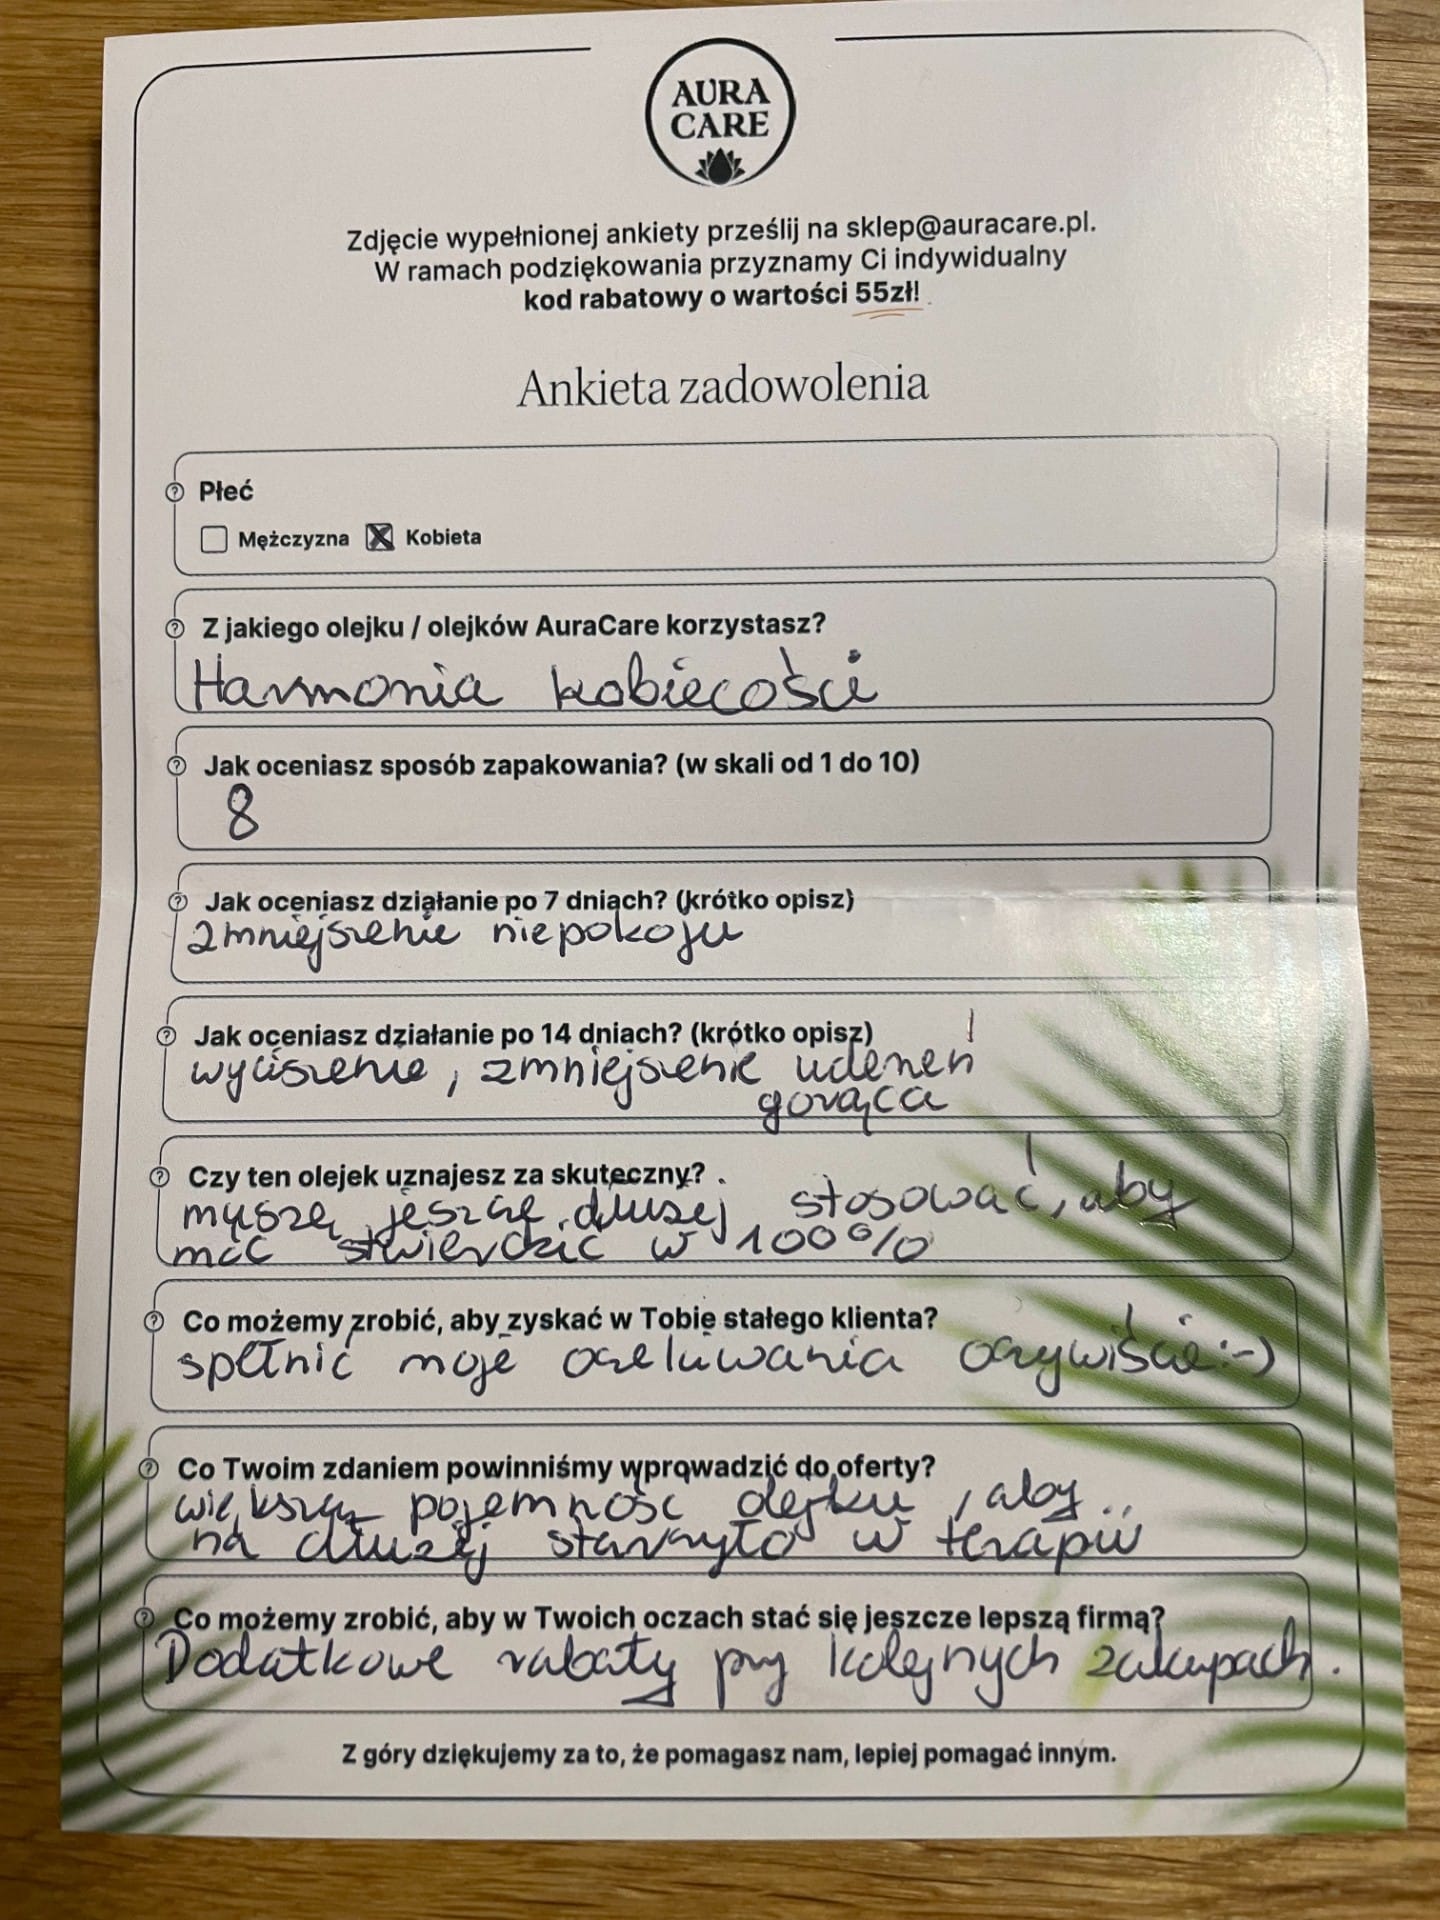 AURA
CARE
Zdjęcie wypełnionej ankiety prześlij na sklep@auracare.pl.
W ramach podziękowania przyznamy Ci indywidualny
kod rabatowy o wartości 55zł!
Ankieta zadowolenia
Płeć
Mężczyzna Kobieta
Z jakiego olejku / olejków AuraCare korzystasz?
Harmonia kobiecości
Jak oceniasz sposób zapakowania? (w skali od 1 do 10)
8
Jak oceniasz działanie po 7 dniach? (krótko opisz)
zmniejszenie niepokoju
Jak oceniasz działanie po 14 dniach? (krótko opisz)
wyciszenie, zmniejszenie uderzeń
gorąca
Czy ten olejek uznajesz za skuteczny?
muszę jeszcze dłużej stosować, aby
móc stwierdzić w 100%
Co możemy zrobić, aby zyskać w Tobie stałego klienta?
spełnić moje oczekiwania oczywiście :-)
Co Twoim zdaniem powinniśmy wprowadzić do oferty?
większą pojemność olejku, aby
na dłużej starczyło w terapii
Co możemy zrobić, aby w Twoich oczach stać się jeszcze lepszą firmą?
Dodatkowe rabaty przy kolejnych zakupach.
Z góry dziękujemy za to, że pomagasz nam, lepiej pomagać innym.